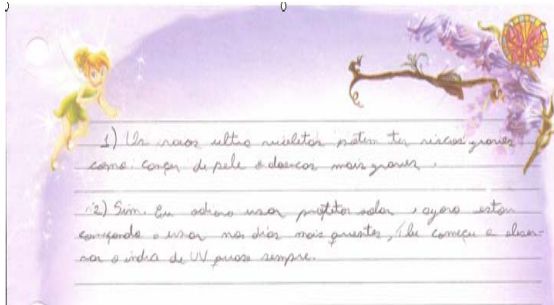 1) Us raios ultra violetas potem ter riscos graves
como conçer de pele e doencas mais graves.
2) Sim. Eu adoro usar protitor solar, agora estou
começando a usar nos dias mais quentes, Eu começu a obser-
var o indice de UV quase sempre.